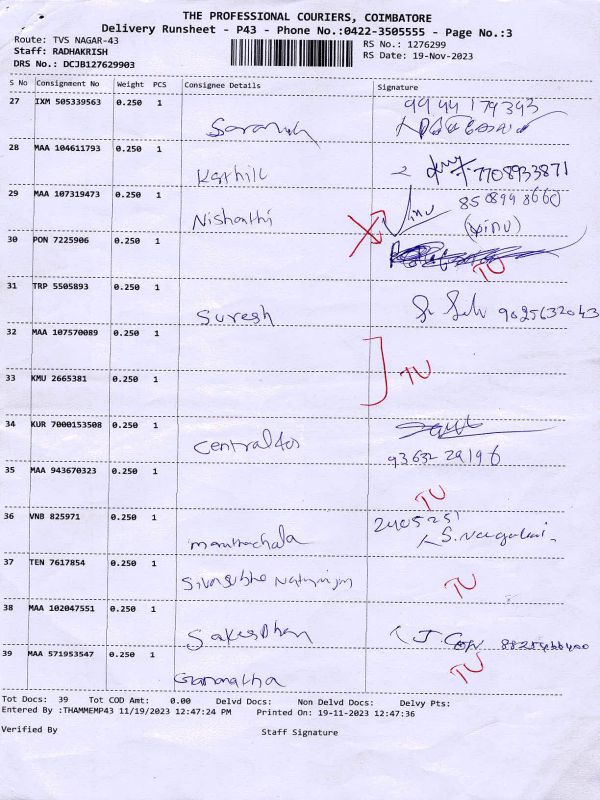 THE PROFESSIONAL COURIERS, COIMBATORE
Delivery Runsheet - P43 - Phone No.:0422-3505555 - Page No.:3
Route: TVS NAGAR-43
RS No.: 1276299
Staff: RADHAKRISH
RS Date: 19-Nov-2023
DRS No.: DCJB127629903
S No Consignment No Weight PCS Consignee Details Signature
27 IXM 505339563 0.250 1 9944179343
28 MAA 104611793 0.250 1 Karthik 7708933871
29 MAA 107319473 0.250 1 Nishanthi Vinu
(Vinu)
30 PON 7225906 0.250 1 TU
31 TRP 5505893 0.250 1 Suresh 9025632043
32 MAA 107570089 0.250 1
TU
33 KMU 2665381 0.250 1
34 KUR 7000153508 0.250 1
93632 29196
35 MAA 943670323 0.250 1 TU
36 VNB 825971 0.250 1
37 TEN 7617854 0.250 1 TU
38 MAA 102047551 0.250 1
39 MAA 571953547 0.250 1 TU
Tot Docs: 39 Tot COD Amt: 0.00 Delvd Docs: Non Delvd Docs: Delvy Pts:
Entered By :THAMMEMP43 11/19/2023 12:47:24 PM Printed On: 19-11-2023 12:47:36
Verified By Staff Signature